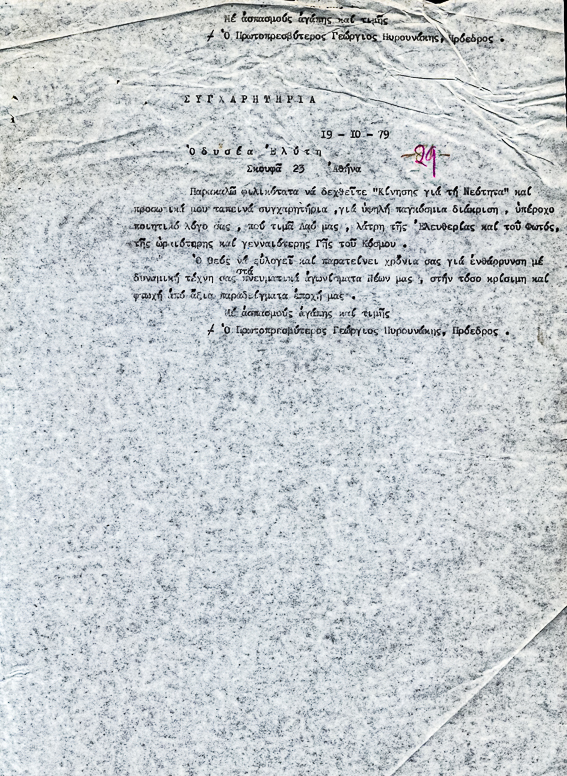 Μέ ἀσπασμούς ἀγάπης καί τιμῆς
Ὁ Πρωτοπρεσβύτερος Γεώργιος Πυρουνάκης, Πρόεδρος .
ΣΥΓΧΑΡΗΤΗΡΙΑ
19 - 10 - 79
Ὀδυσέα Ἐλύτη
29
Σκουφᾶ 23 Ἀθήνα
Παρακαλῶ φιλικότατα νά δεχθεῖτε "Κίνησης γιά τή Νεότητα" καί
προσωπικά μου ταπεινά συγχαρητήρια ,γιά ὑψηλή παγκόσμια διάκριση , ὑπέροχο
ποιητικό λόγο σας , πού τιμᾶ Λαό μας , λάτρη τῆς Ἐλευθερίας καί τοῦ Φωτός,
τῆς ὡραιότερης καί γενναιότερης Γῆς τοῦ Κόσμου .
Ὁ Θεός νά εὐλογεῖ καί παρατείνει χρόνια σας γιά ἐνθάρρυνση μέ
δυναμική τέχνη σας στά πνευματικά ἀγωνίσματα Νέων μας , στήν τόσο κρίσιμη καί
φτωχή ἀπό ἄξια παραδείγματα ἐποχή μας .
Μέ ἀσπασμούς ἀγάπης καί τιμῆς
Ὁ Πρωτοπρεσβύτερος Γεώργιος Πυρουνάκης, Πρόεδρος .